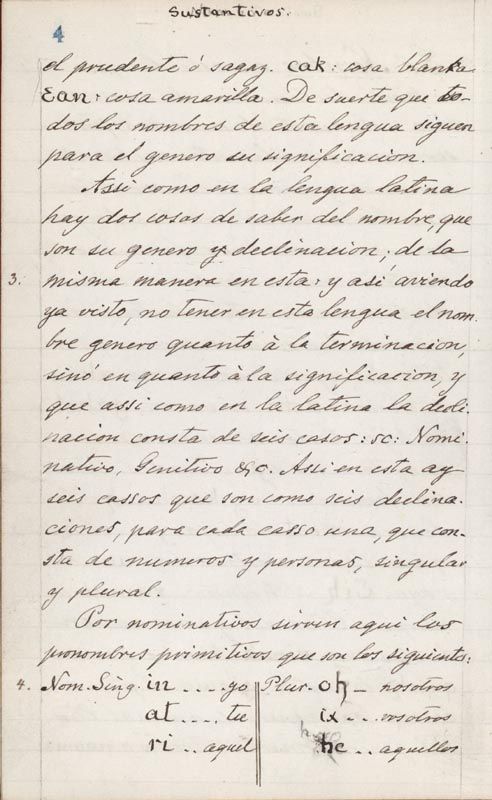 Sustantivos.
4
el prudente ó sagaz. cak: cosa blanka
Ean: cosa amarilla. De suerte que to-
dos los nombres de esta lengua siguen
para el genero su significacion.
Assi como en la lengua latina
hay dos cosas de saber del nombre, que
son su genero y declinacion; de la
3. misma manera en esta: y asi aviendo
ya visto, no tener en esta lengua el nom-
bre genero quanto à la terminacion,
sinó en quanto à la significacion, y
que assi como en la latina la decli-
nacion consta de seis casos: sc: Nomi-
nativo, Genitivo &c. Assi en esta ay
seis cassos que son como seis declina-
ciones, para cada casso una, que con-
sta de numeros y personas, singular
y plural.
Por nominativos sirven aqui los
pronombres primitivos que son los siguientes:
4. Nom. Sing. in .... yo Plur. oh – nosotros
at .... tu ix ... vosotros
ri .. aquel he .. aquellos